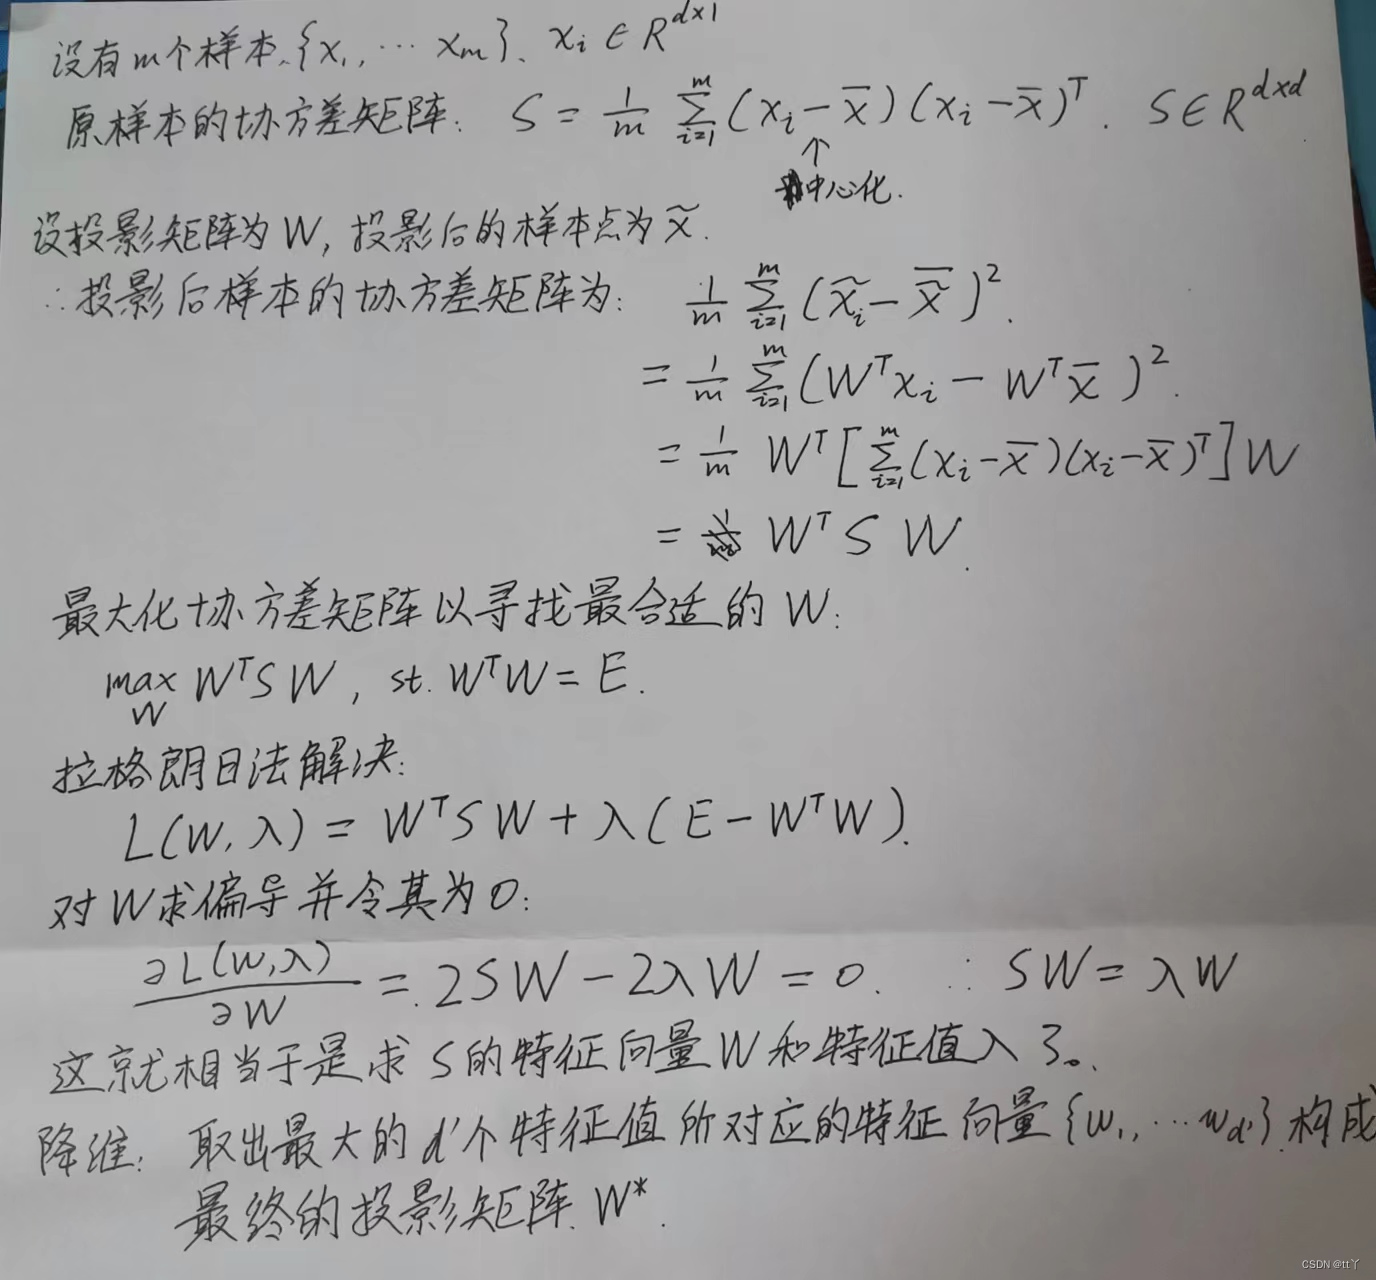 设有m个样本,{x₁, … xₘ}、xᵢ ∈ R^{d×1}
原样本的协方差矩阵: S = 1/m ∑_{i=1}^{m} (xᵢ - x̄)(xᵢ - x̄)ᵀ. S ∈ R^{d×d}
↑
中心化.
设投影矩阵为W, 投影后的样本点为 x̃.
∴投影后样本的协方差矩阵为: 1/m ∑_{i=1}^{m} (x̃ᵢ - \overline{x̃})².
= 1/m ∑_{i=1}^{m} (Wᵀxᵢ - Wᵀx̄)².
= 1/m Wᵀ[∑_{i=1}^{m} (xᵢ - x̄)(xᵢ - x̄)ᵀ]W
= WᵀSW.
最大化协方差矩阵以寻找最合适的W:
max_W WᵀSW, st. WᵀW = E.
拉格朗日法解决:
L(W, λ) = WᵀSW + λ(E - WᵀW).
对W求偏导并令其为0:
∂L(W,λ)/∂W = 2SW - 2λW = 0. ∴ SW = λW
这就相当于是求S的特征向量W和特征值λ了。
降维: 取出最大的d'个特征值所对应的特征向量{w₁, … w_{d'}}构成
最终的投影矩阵. W*.
CSDN @tt丫